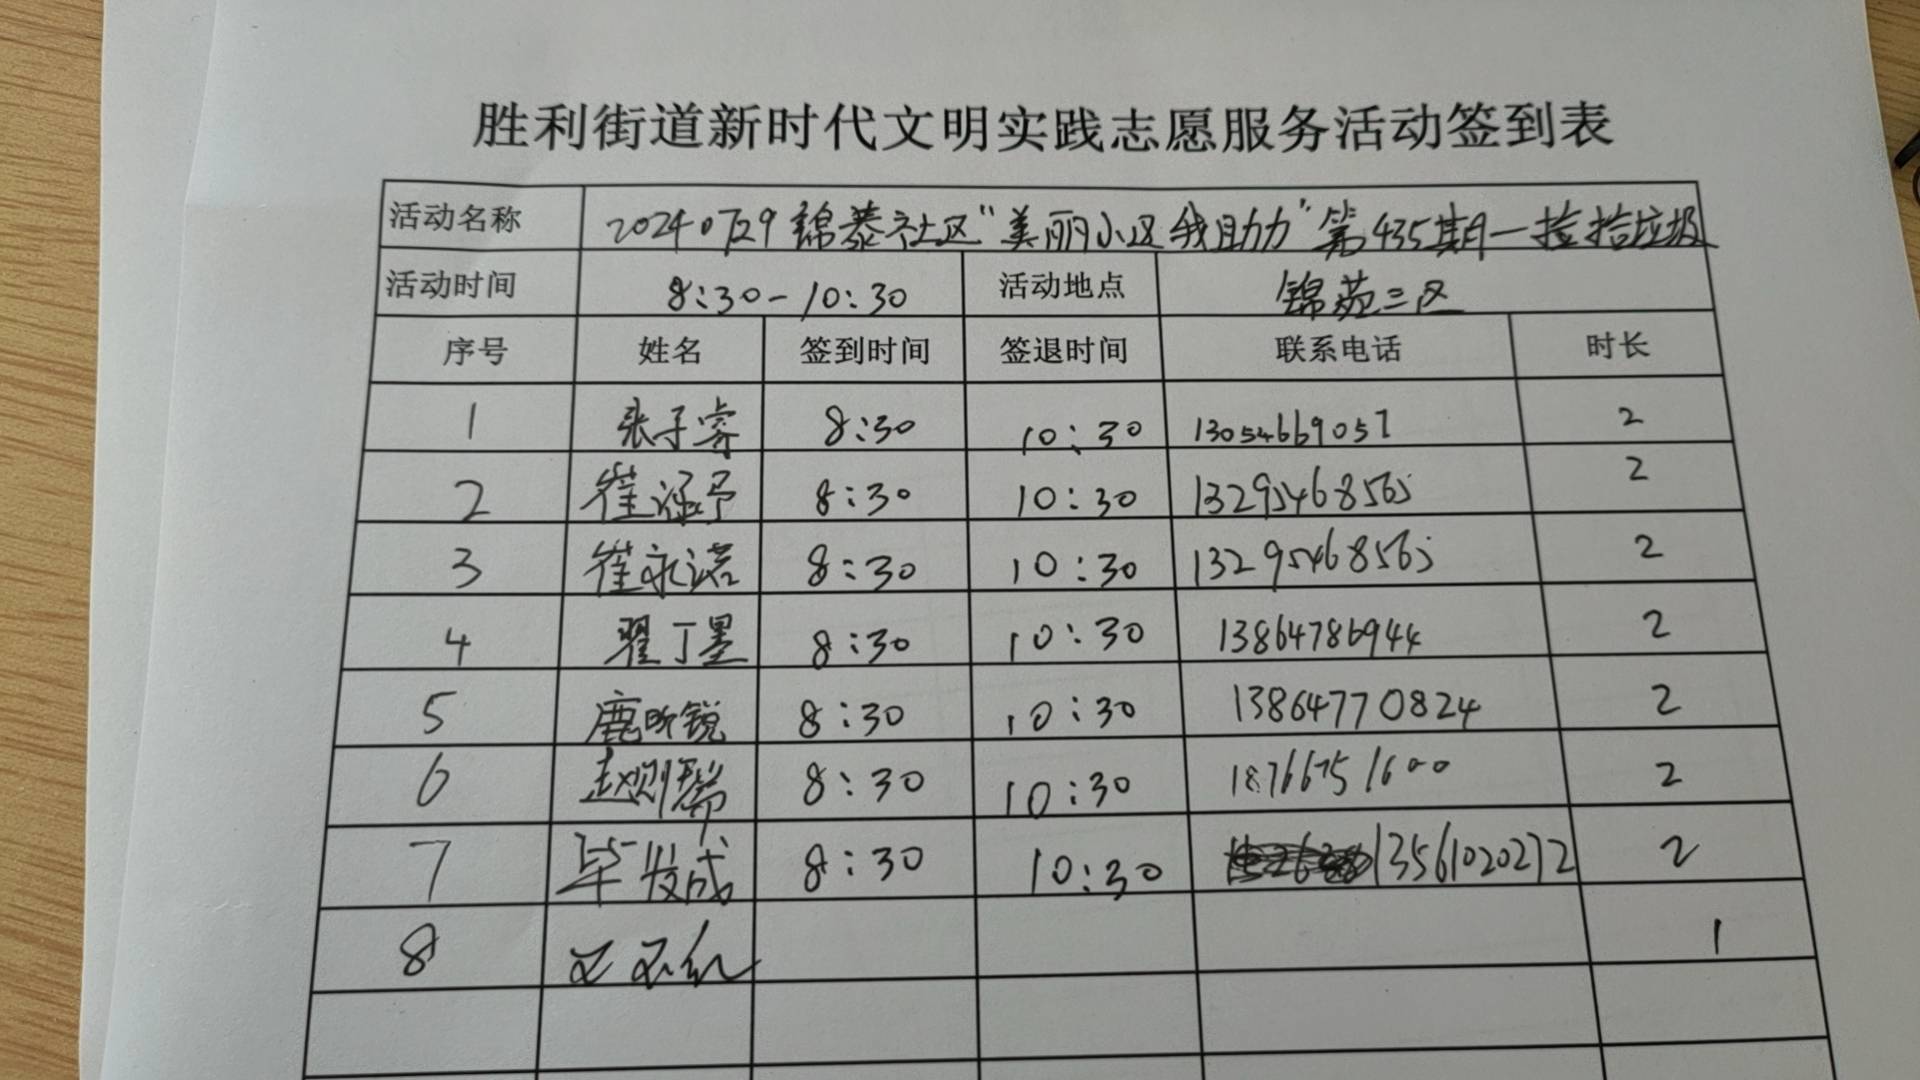 胜利街道新时代文明实践志愿服务活动签到表
活动名称 20240729锦泰社区“美丽小区我助力”第435期一捡拾垃圾
活动时间 8:30-10:30 活动地点 锦苑三区
序号 姓名 签到时间 签退时间 联系电话 时长
1 张子睿 8:30 10:30 13054669057 2
2 崔涵予 8:30 10:30 13295468565 2
3 崔永诺 8:30 10:30 13295468565 2
4 翟丁墨 8:30 10:30 13864786944 2
5 鹿昕锐 8:30 10:30 13864770824 2
6 赵则瑞 8:30 10:30 18766751600 2
7 毕成 8:30 10:30 13561020272 2
8 1